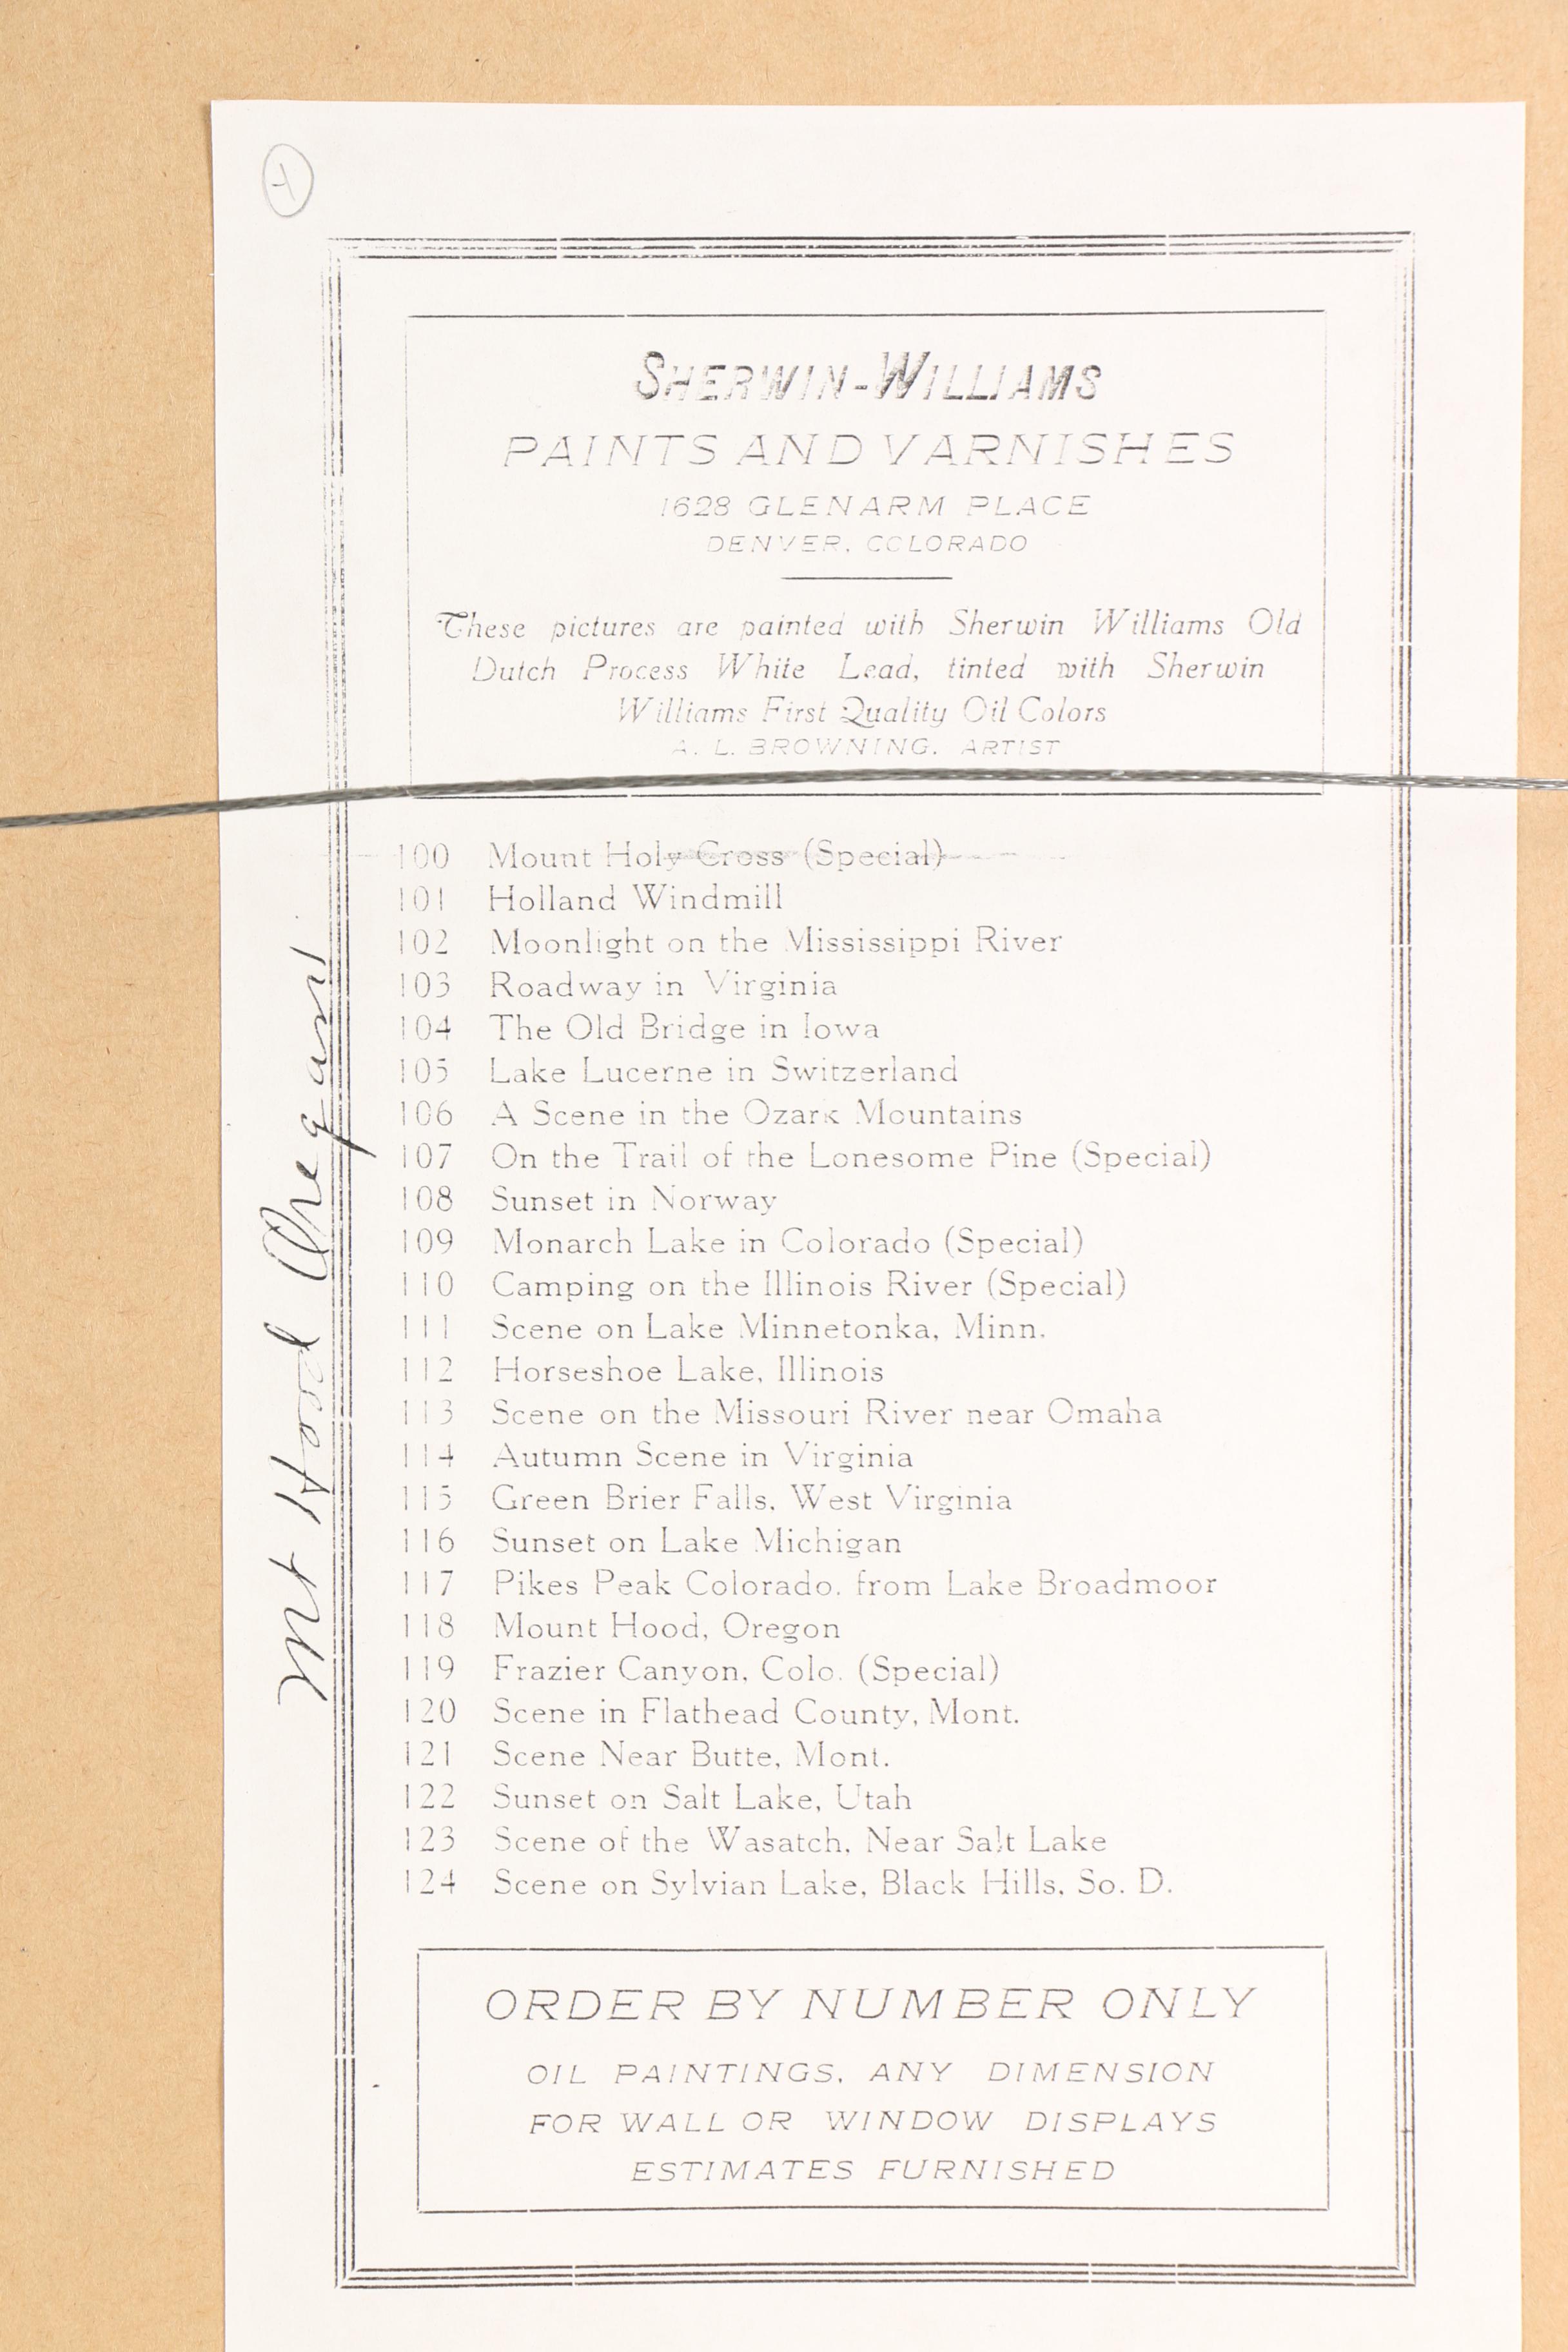 SHERWIN-WILLIAMS
PAINTS AND VARNISHES
1628 GLENARM PLACE
DENVER, COLORADO
These pictures are painted with Sherwin Williams Old
Dutch Process White Lead, tinted with Sherwin
Williams First Quality Oil Colors
A. L. BROWNING, ARTIST
100 Mount Holy Cross (Special)
101 Holland Windmill
102 Moonlight on the Mississippi River
103 Roadway in Virginia
104 The Old Bridge in Iowa
105 Lake Lucerne in Switzerland
106 A Scene in the Ozark Mountains
107 On the Trail of the Lonesome Pine (Special)
108 Sunset in Norway
109 Monarch Lake in Colorado (Special)
110 Camping on the Illinois River (Special)
111 Scene on Lake Minnetonka, Minn.
112 Horseshoe Lake, Illinois
113 Scene on the Missouri River near Omaha
114 Autumn Scene in Virginia
115 Green Brier Falls, West Virginia
116 Sunset on Lake Michigan
117 Pikes Peak Colorado, from Lake Broadmoor
118 Mount Hood, Oregon
119 Frazier Canyon, Colo. (Special)
120 Scene in Flathead County, Mont.
121 Scene Near Butte, Mont.
122 Sunset on Salt Lake, Utah
123 Scene of the Wasatch, Near Salt Lake
124 Scene on Sylvian Lake, Black Hills, So. D.
ORDER BY NUMBER ONLY
OIL PAINTINGS, ANY DIMENSION
FOR WALL OR WINDOW DISPLAYS
ESTIMATES FURNISHED
Mt Hood